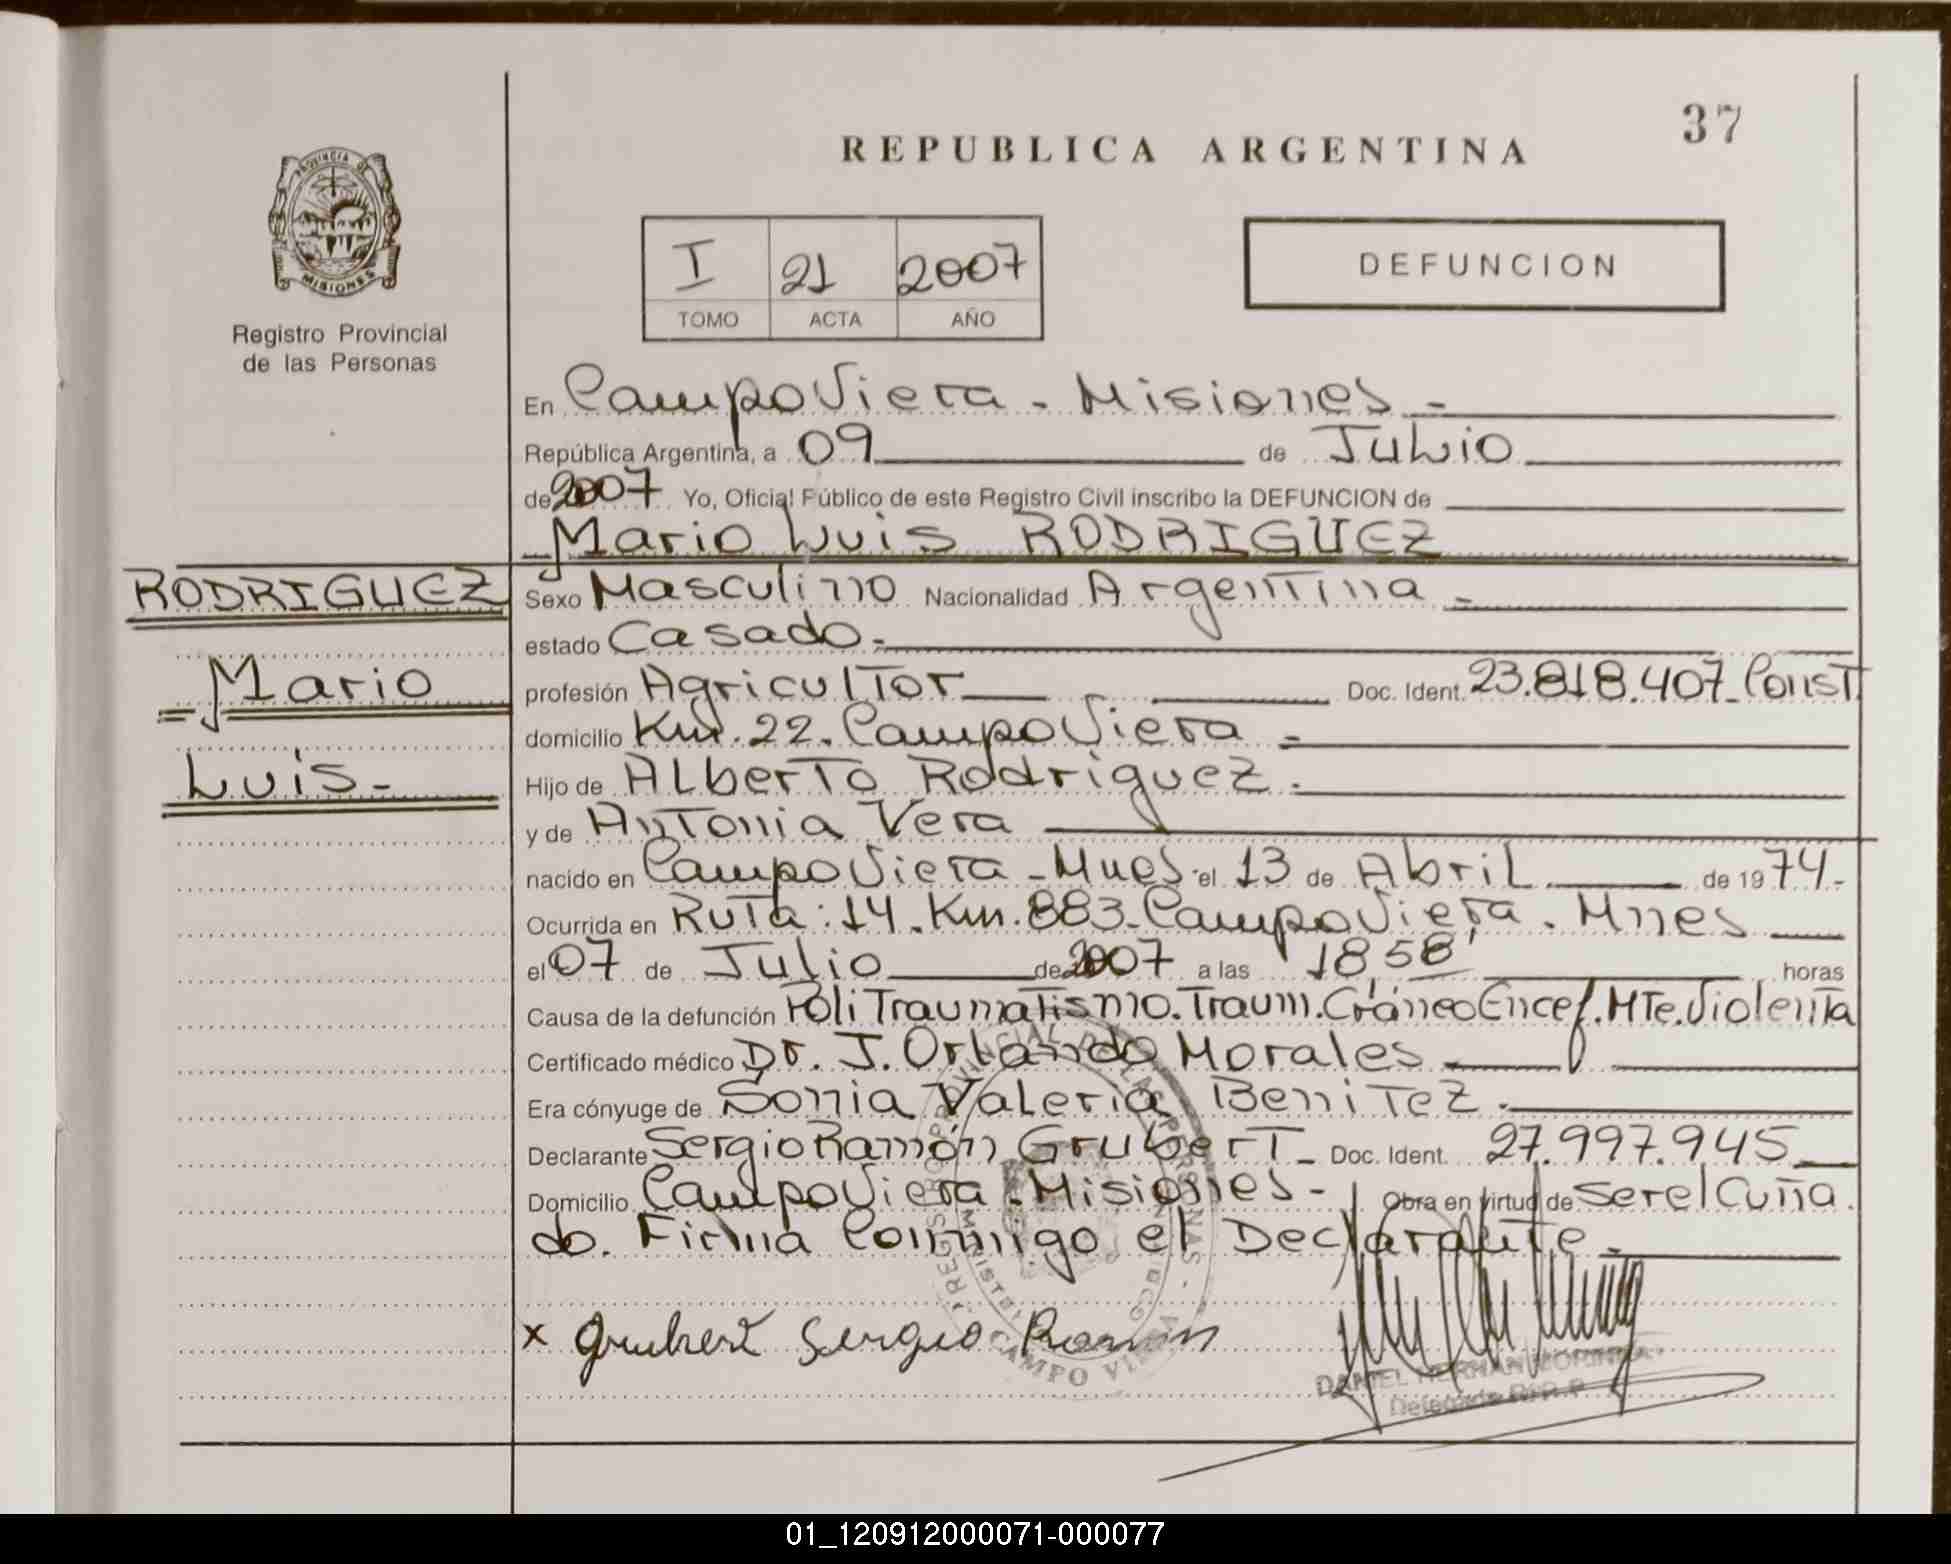 37
REPUBLICA ARGENTINA
PROVINCIA DE
MISIONES
Registro Provincial
de las Personas
I 21 2007
TOMO ACTA AÑO
DEFUNCION
En Campo Viera - Misiones -
República Argentina, a 09 de Julio
de 2007 Yo, Oficial Público de este Registro Civil inscribo la DEFUNCION de
Mario Luis RODRIGUEZ
RODRIGUEZ
Mario
Luis-
Sexo Masculino Nacionalidad Argentina -
estado Casado.-
profesión Agricultor Doc. Ident. 23.818.407-Const
domicilio Km. 22. Campo Viera -
Hijo de Alberto Rodriguez.
y de Antonia Vera
nacido en Campo Viera - Mnes. el 13 de Abril de 1974.-
Ocurrida en Ruta: 14. Km. 883-Campo Viera. Mnes
el 07 de Julio de 2007 a las 18,58' horas
Causa de la defunción PoliTraumatismo. Traum. CráneoEncef. MTe. Violenta
Certificado médico Dr. J. Orlando Morales
Era cónyuge de Sonia Valeria Benitez.
Declarante Sergio Ramón Grubert - Doc. Ident. 27.997.945
Domicilio Campo Viera - Misiones - Obra en virtud de ser el Cuña
do. Firma Conmigo el Declarante.
x Grubert Sergio Ramon
CAMPO VIERA
DANIEL HERNAN
Delegado R.P.P.
01_120912000071-000077